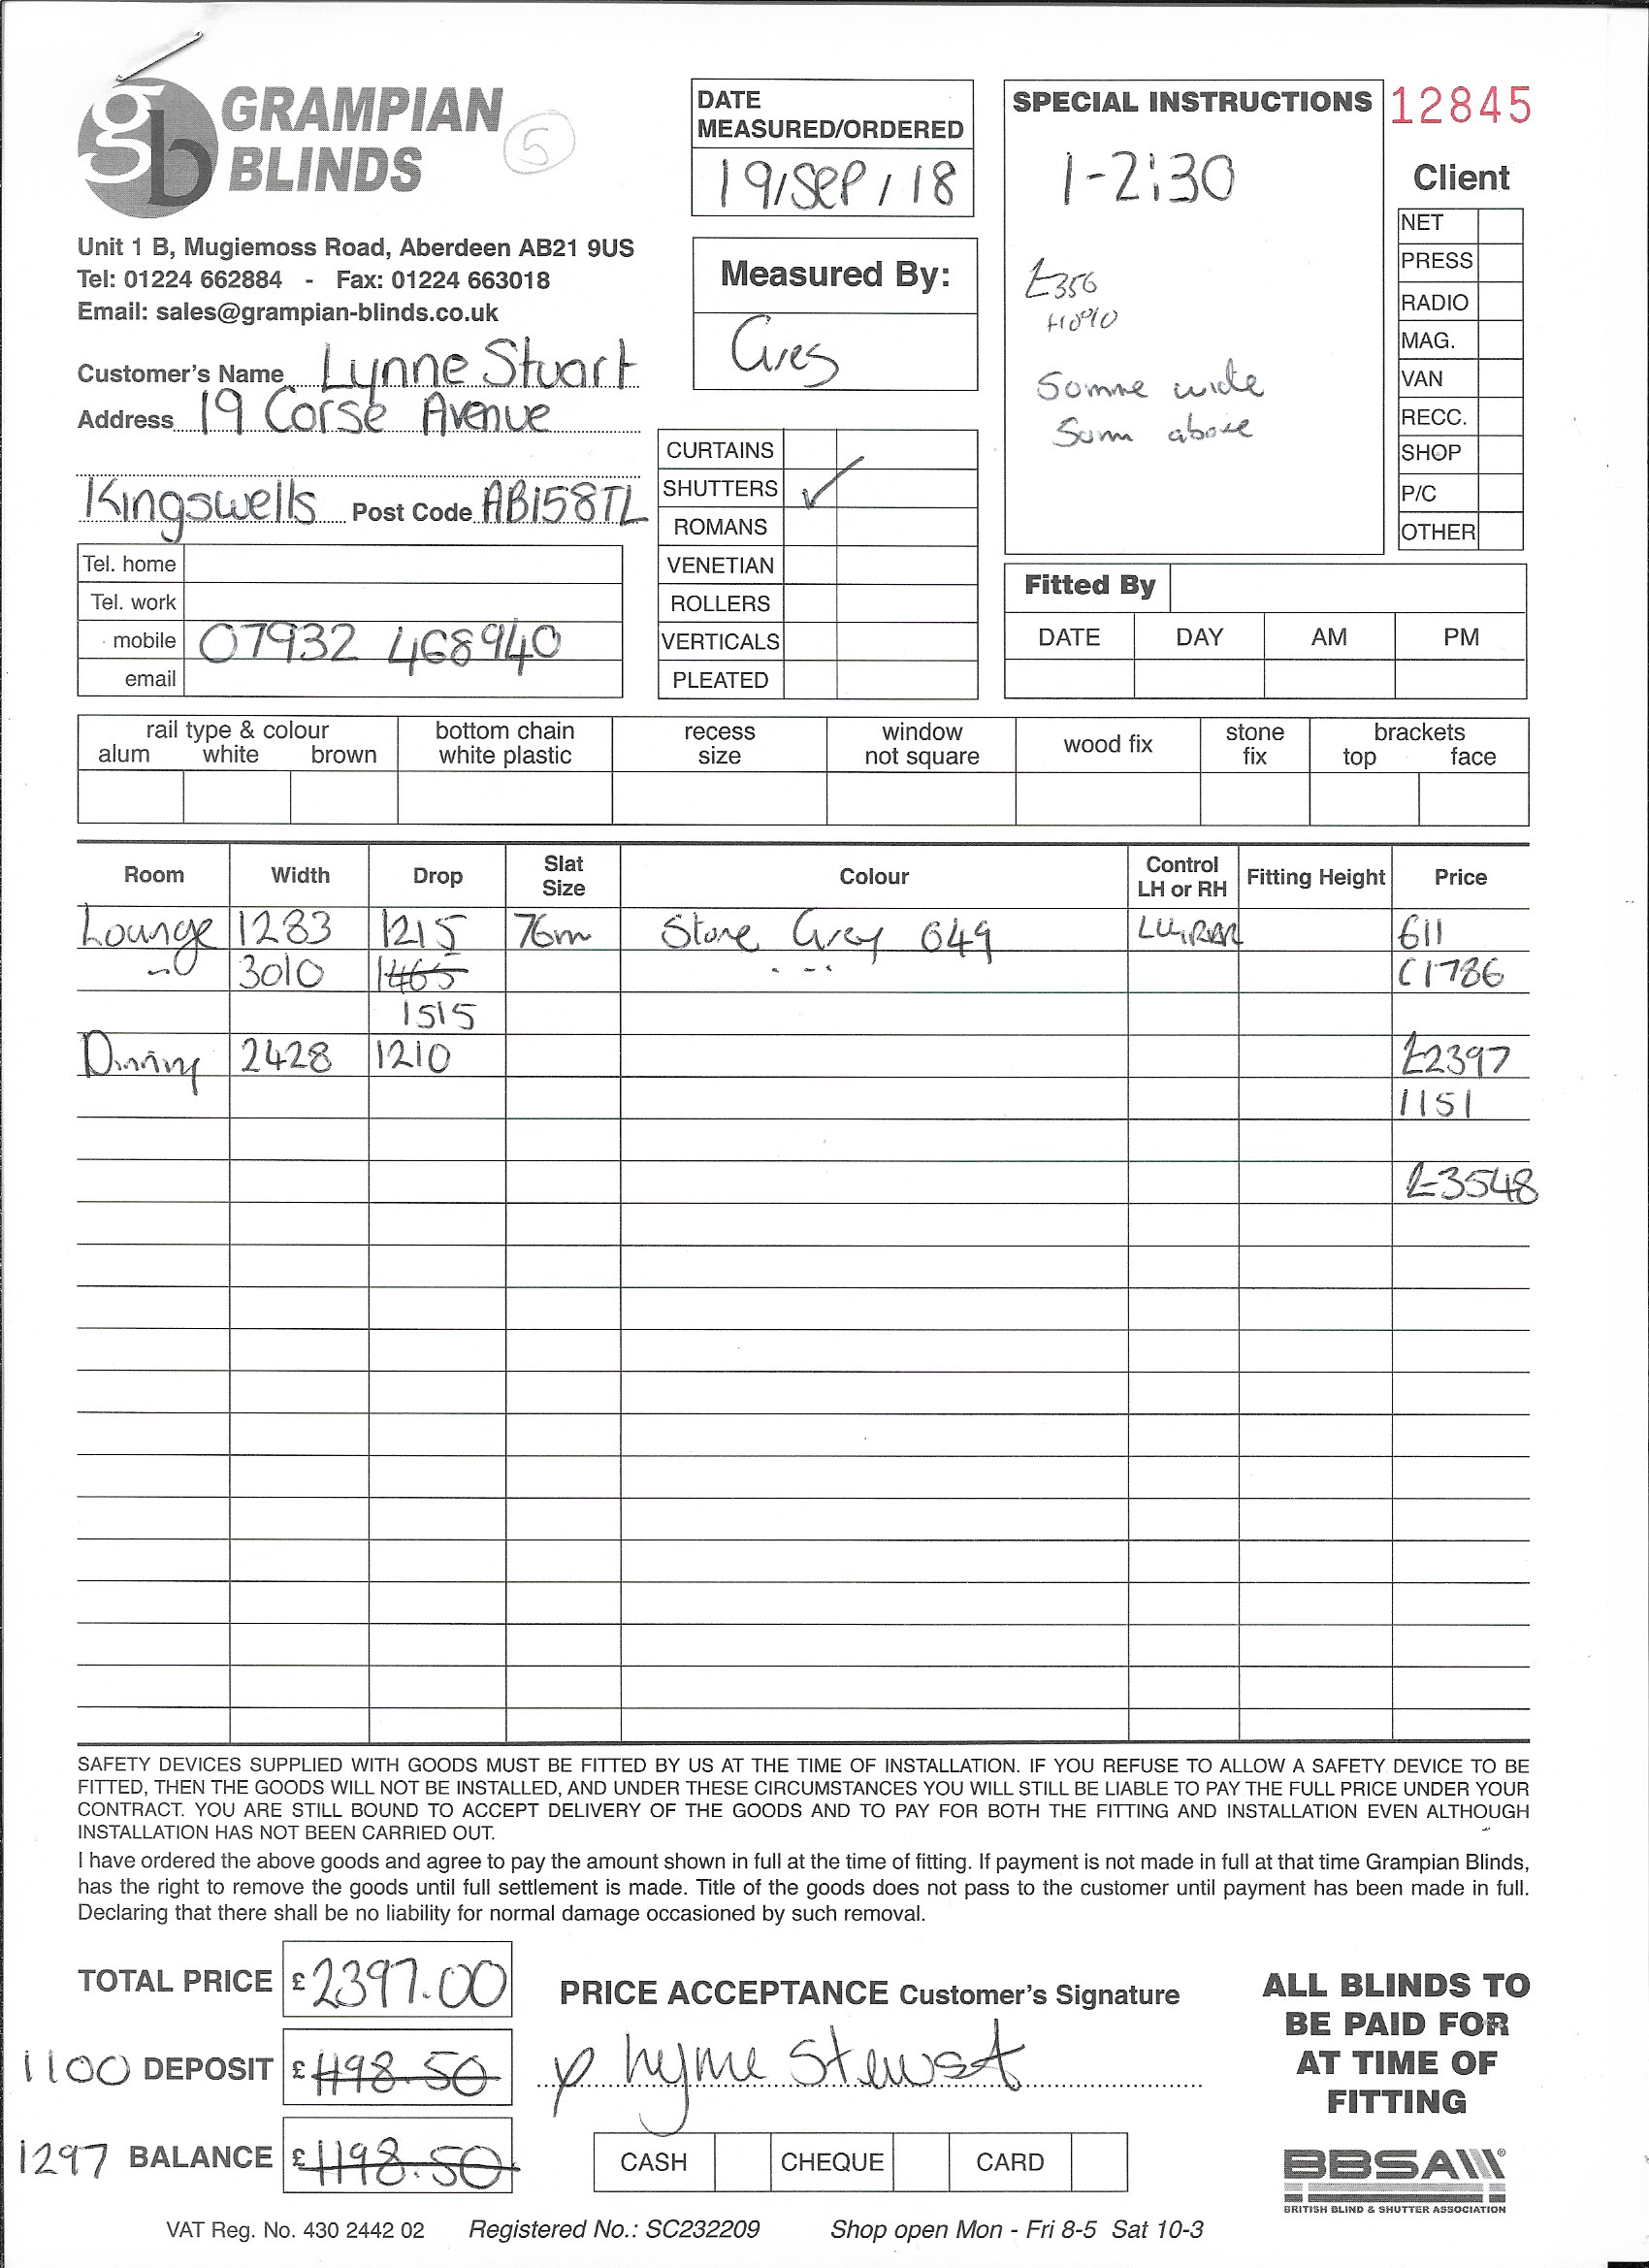 gb GRAMPIAN BLINDS
5
Unit 1 B, Mugiemoss Road, Aberdeen AB21 9US
Tel: 01224 662884 - Fax: 01224 663018
Email: sales@grampian-blinds.co.uk
Customer's Name Lynne Stuart
Address 19 Corse Avenue
Kingswells Post Code AB158TL
Tel. home
Tel. work
mobile 07932 468940
email
DATE MEASURED/ORDERED
19/SEP/18
Measured By:
CURTAINS
SHUTTERS ✓
ROMANS
VENETIAN
ROLLERS
VERTICALS
PLEATED
SPECIAL INSTRUCTIONS
1-2:30
£356
+10%
50mm wide
50mm above
12845
Client
NET
PRESS
RADIO
MAG.
VAN
RECC.
SHOP
P/C
OTHER
Fitted By
DATE DAY AM PM
rail type & colour bottom chain recess window wood fix stone brackets
alum white brown white plastic size not square fix top face
Room Width Drop Slat Size Colour Control LH or RH Fitting Height Price
Lounge 1283 1215 76m Stone Grey 049 611
3010 1465 1786
1515
Dinning 2428 1210 £2397
1151
£3548
SAFETY DEVICES SUPPLIED WITH GOODS MUST BE FITTED BY US AT THE TIME OF INSTALLATION. IF YOU REFUSE TO ALLOW A SAFETY DEVICE TO BE
FITTED, THEN THE GOODS WILL NOT BE INSTALLED, AND UNDER THESE CIRCUMSTANCES YOU WILL STILL BE LIABLE TO PAY THE FULL PRICE UNDER YOUR
CONTRACT. YOU ARE STILL BOUND TO ACCEPT DELIVERY OF THE GOODS AND TO PAY FOR BOTH THE FITTING AND INSTALLATION EVEN ALTHOUGH
INSTALLATION HAS NOT BEEN CARRIED OUT.
I have ordered the above goods and agree to pay the amount shown in full at the time of fitting. If payment is not made in full at that time Grampian Blinds,
has the right to remove the goods until full settlement is made. Title of the goods does not pass to the customer until payment has been made in full.
Declaring that there shall be no liability for normal damage occasioned by such removal.
TOTAL PRICE £2397.00
1100 DEPOSIT £1198.50
1297 BALANCE £1198.50
PRICE ACCEPTANCE Customer's Signature
CASH CHEQUE CARD
ALL BLINDS TO
BE PAID FOR
AT TIME OF
FITTING
BBSA
BRITISH BLIND & SHUTTER ASSOCIATION
VAT Reg. No. 430 2442 02 Registered No.: SC232209 Shop open Mon - Fri 8-5 Sat 10-3